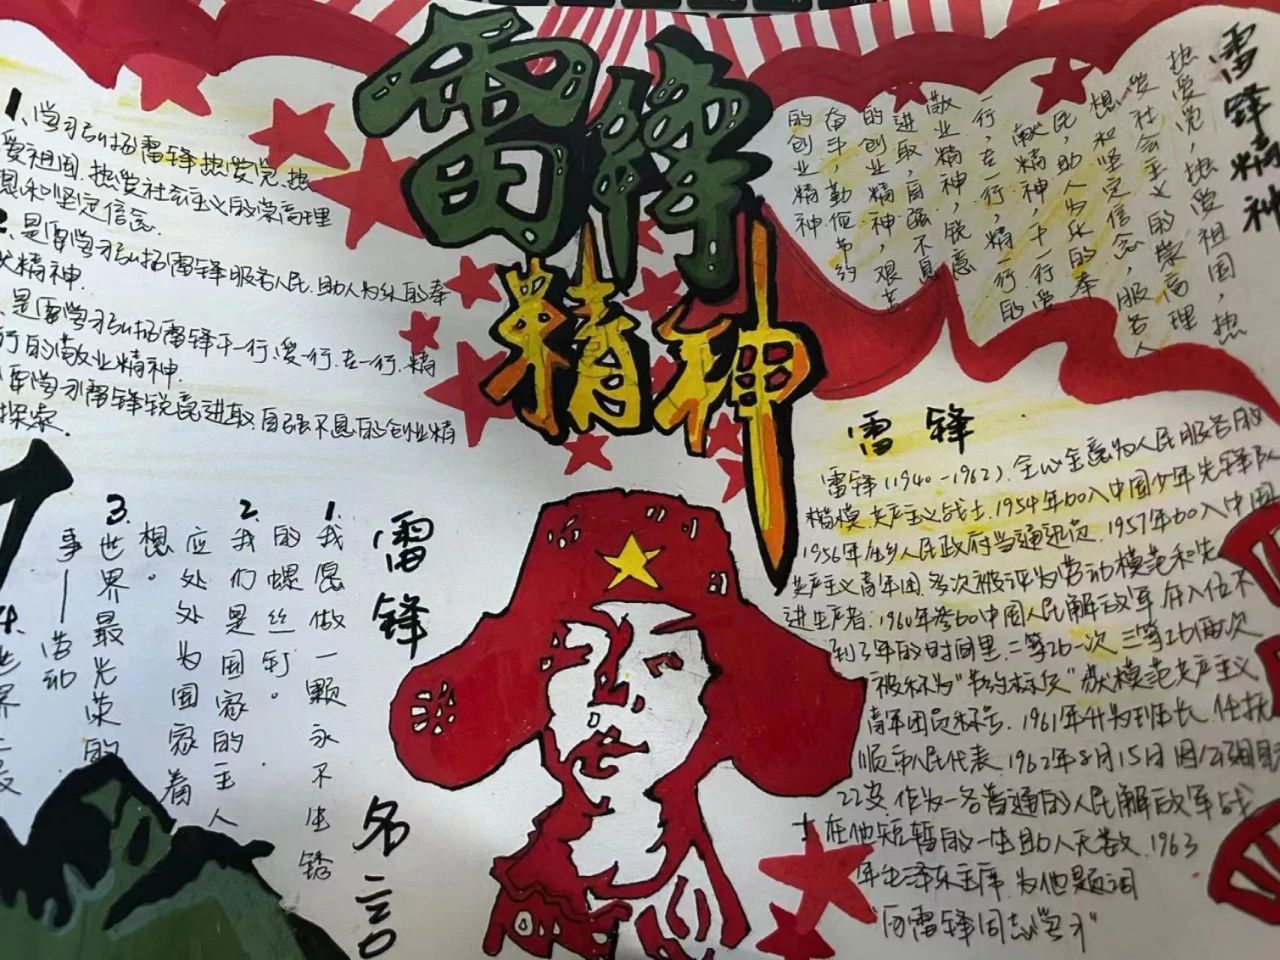 雷锋
精神
1、学习弘扬雷锋热爱党,热
爱祖国,热爱社会主义的崇高理
想和坚定信念.
2、是要学习弘扬雷锋服务人民,助人为乐的奉
献精神.
是要学习弘扬雷锋干一行,爱一行,专一行,精
行的敬业精神.
要学习雷锋锐意进取自强不息的创业精
雷锋精神
热爱党,热爱祖国,热
爱社会主义的崇高理
想和坚定信念,服务人
民,助人为乐的奉
献精神,干一行爱
一行,专一行,精一行的
敬业精神,锐意
进取,自强不息
的创业精神,艰苦
奋斗,勤俭节约
的创业精神
雷锋
雷锋(1940-1962).全心全意为人民服务的
楷模,共产主义战士.1954年加入中国少年先锋队
1956年在乡人民政府当通迅员.1957年加入中国
共产主义青年团,多次被评为劳动模范和先
进生产者.1960年参加中国人民解放军,在入伍不
到3年的时间里,二等功一次,三等功两次
被称为“节约标兵”,模范共产主义
青年团员称号.1961年升为班长,任抚
顺市人民代表.1962年8月15日因公殉国
22岁.作为一名普通的人民解放军战
士在他短暂的一生助人无数,1963
年毛泽东主席为他题词
“向雷锋同志学习”
雷锋名言
1.我愿做一颗永不生锈
的螺丝钉。
2.我们是国家的主人
应处处为国家着
想。
3.世界最光荣的
事——劳动
4.世界